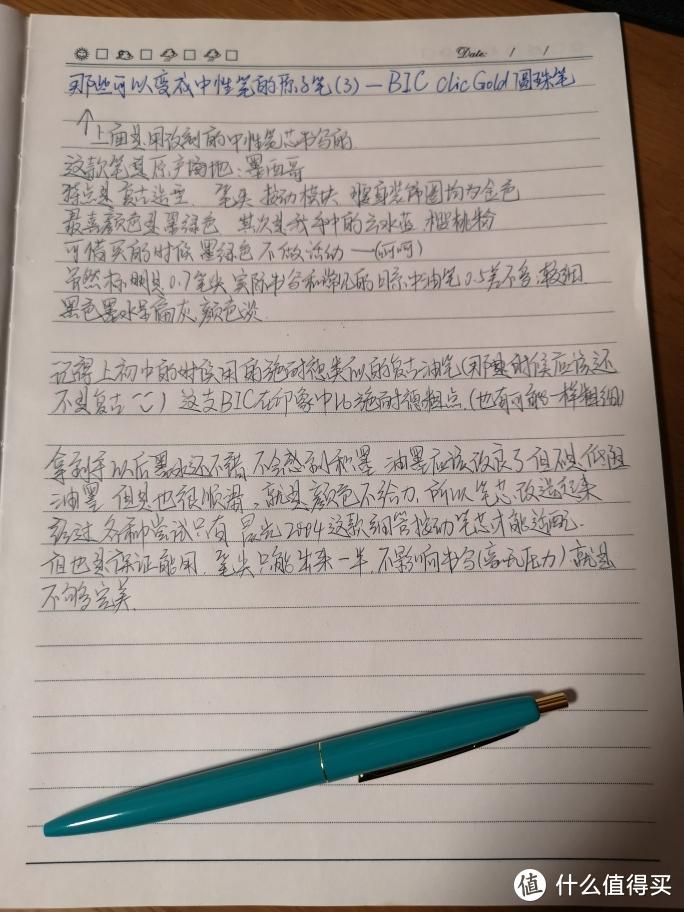 Date: / /
那些可以变成中性笔的原子笔(3)—BIC clic Gold 圆珠笔
↑上面是用改制的中性笔芯书写的
这款笔是原产地:墨西哥
特点是复古造型 笔尖 按动模块 腰身装饰圈均为金色
最喜颜色是墨绿色 其次是我手中的 樱桃粉
可惜买的时候墨绿色不做活动—(呵呵)
虽然标明是0.7笔尖 实际书写和常见的日系中油笔0.5差不多 较细
黑色墨水是偏灰,颜色淡
记得上初中的时候用的施耐德类似的复古油笔(那时候应该还
不是复古) 这支BIC在印象中比施耐德粗点(也有可能一样粗细)
拿到手以后墨水还不错 不会感到积墨 油墨应该改良了但不是低阻
油墨 但是也很顺滑,就是颜色不给力,所以笔芯改造起来
经过各种尝试只有晨光2804这款细管按动笔芯才能适配
但也是保证能用,笔尖只能出来一半,不影响书写 就是
不够完美
值 什么值得买